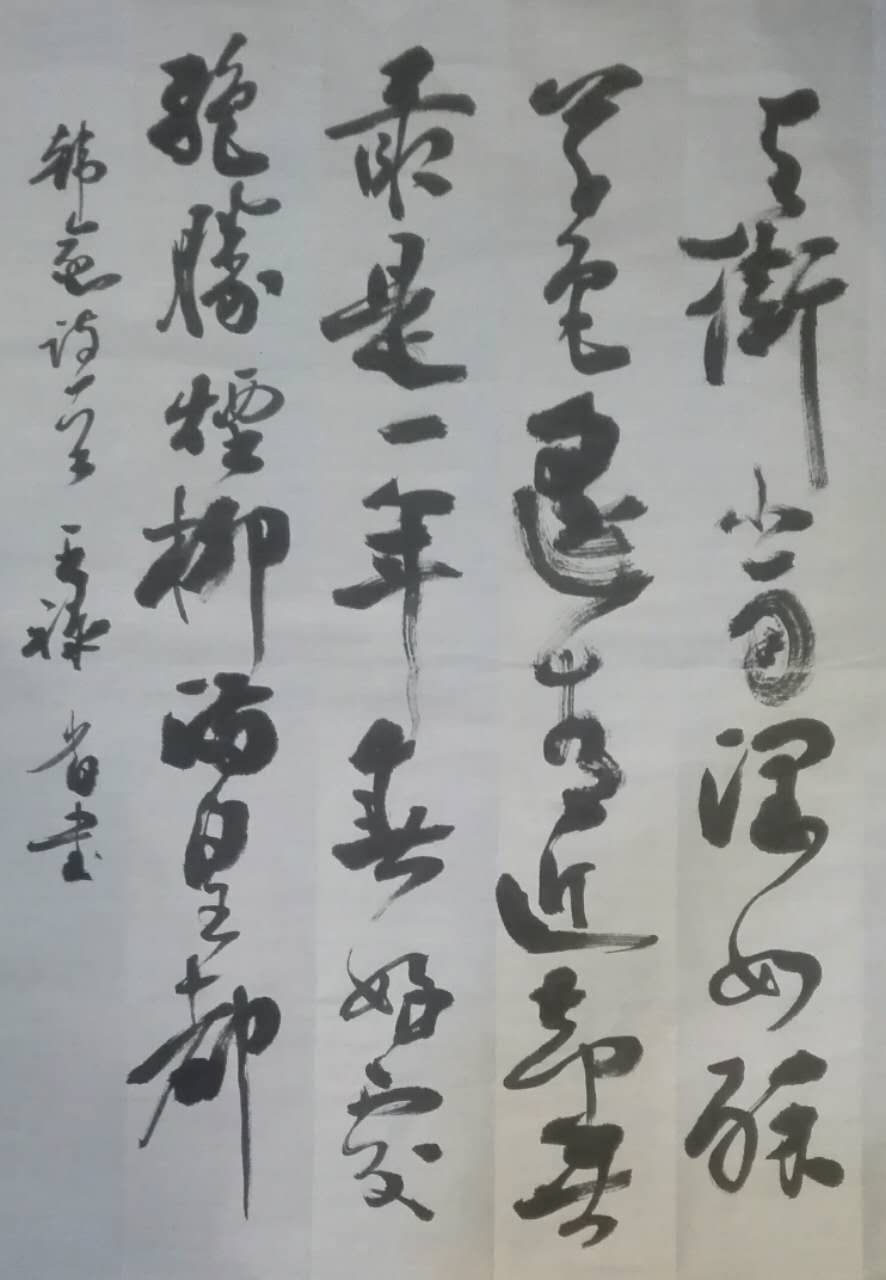 天街小雨潤如酥
草色遥看近却無
最是一年春好處
绝勝煙柳滿皇都
韩愈诗一首 書